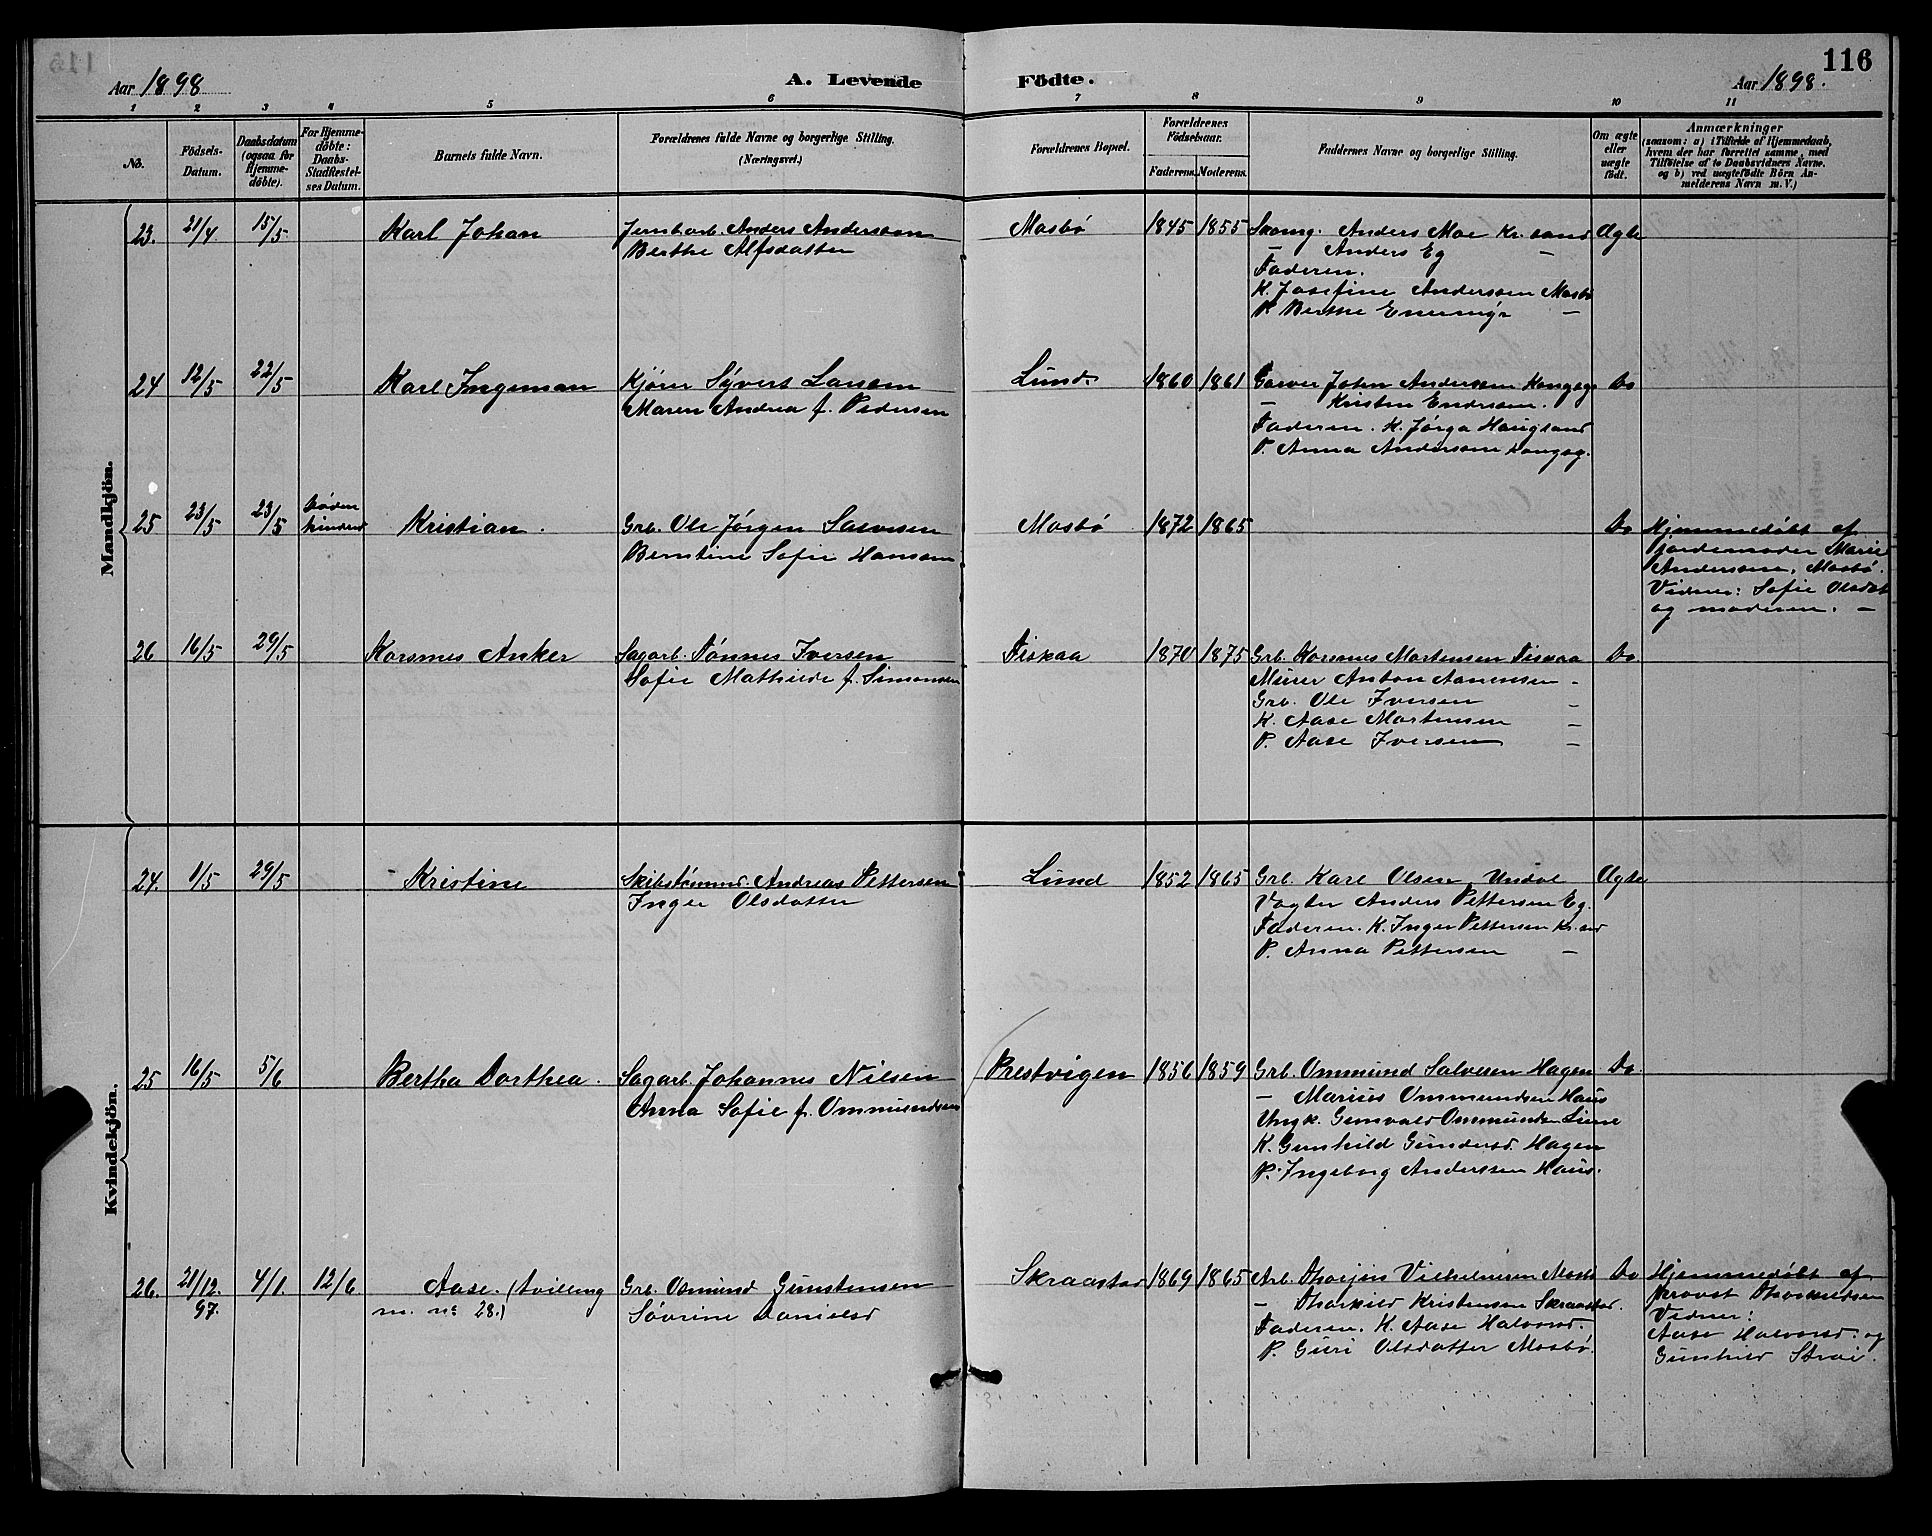 116
Aar 1898
A. Levende Födte.
Aar 1898.
1 2 3 4 5 6 7 8 9 10 11
No.
Födsels-Datum.
Daabsdatum (ogsaa for Hjemme-döbte).
For Hjemme-döbte: Daabs-Stadfæstel-ses Datum.
Barnets fulde Navn.
Forældrenes fulde Navne og borgerlige Stilling. (Næringsvei.)
Forældrenes Bopæl.
Forældrenes Födselsaar.
Faderens. Moderens.
Faddernes Navne og borgerlige Stilling.
Om ægte eller uægte födt.
Anmærkninger
(saasom: a) i Tilfælde af Hjemmedaab, hvem der har forrettet samme, med Tilföielse af to Daabsvidners Navne, og b) ved uægtefödte Börn An-melderens Navn m. V.)
Mandkjön.
23. 21/4 15/5 Karl Johan
Jernbarb. Anders Anderssen
Berthe Alfsdatter
Mosbø 1845 1855
Skomg. Anders Moe Kr.sand Ægte
— Anders Eg —
Faderen.
K. Josefine Anderssen Mosbø
P. Berthe —
24 12/5 22/5 Karl Ingeman
Kjører Syvert Larsen
Maren Andrea f. Pedersen
Lund. 1860 1861
Garver John Anderssen Kongsg. Do
— Kristen Endresen.
Faderen. K. Jørga Haugland
P. Anna Anderssen Kongsg.
25 23/5 23/5 Døden hindred
Kristian.
Grb. Ole Jørgen Salvesen
Berntine Sofie Hansen
Mosbø 1872 1865 Do
Hjemmedøbt af
Jordemoder Marie
Anderssen, Mosbø.
Vidner: Sofie Olsdat
og moderen. —
26 16/5 29/5 Korsmes Anker
Sagarb. Tønnes Iversen
Sofie Mathilde f. Simonsen
Fiskaa 1870 1875
Grb. Korsmes Mortensen Fiskaa Do
Murer Anton Aanensen —
Grb. Ole Iversen —
K. Aase Mortensen —
P. Aase Iversen —
Kvindekjön.
24. 1/5 29/5 Kristine
Skibstømmd. Andreas Pettersen
Inger Olsdatter
Lund 1852 1865
Grb. Karl Olsen Undal Ægte
Vogter Anders Pettersen Eg.
Faderen. K. Inger Pettersen Kr.sd
P. Anna Pettersen —
25 16/5 5/6 Bertha Dorthea.
Sagarb. Johannes Nilsen
Anna Sofie f. Ommundsen
Prestvigen 1856 1859
Grb. Ommund Salvesen Hagen Do.
— Marius Ommundsen Haus
Ungk. Gunvald Ommundsen Lune
K. Gunhild Gundersd. Hagen
P. Ingeborg Anderssen Haus.
26. 21/12 97. 4/1. 12/6 Aase. (tvilling
m. no 28.)
Grb. Osmund Gunstensen
Søvrine Danielsd
Skraastad 1869 1865
Arb. Vilhelmsen Mosb Do
— Thorkild Kristensen Skraastad.
Faderen. K. Aase Halvorsd.
P. Guri Olsdatter Mosbø.
Hjemmedøbt af
provst
Vidner:
Aase Halvorsd. og
Gunhild Strai.